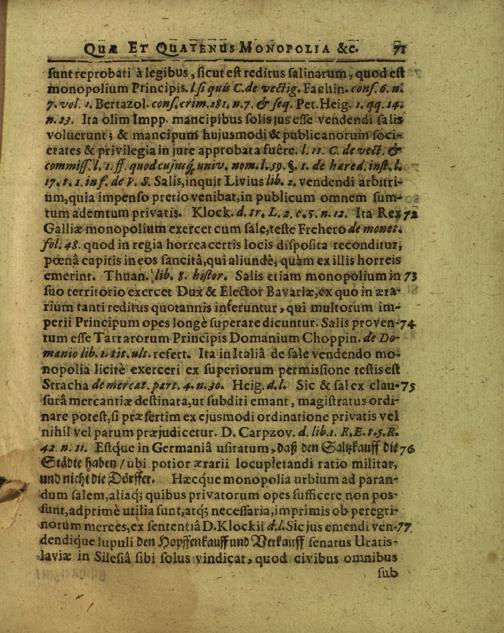 QUÆ ET QUATENUS MONOPOLIA &c. 71
sunt reprobati à legibus, sicut est reditus salinarum, quod est
monopolium Principis. l. si quis C. de vectig. Fachin. cons. 6. n.
7. vol. 1. Bertazol. cons. crim. 281. n. 7. & seq. Pet. Heig. 1. qq. 14.
n. 23. Ita olim Impp. mancipibus solis jus esse vendendi salis
voluerunt; & mancipum hujusmodi & publicanorum soci-
etates & privilegia in jure approbata fuêre. l. 11. C. de vect. &
commiss. l. 1. ff. quod cujusq; univ. nom. l. 59. §. 1. de hæred. inst. l.
17. s. 1. inf. de V. S. Salis, inquit Livius lib. 2. vendendi arbitri-
um, quia impenso pretio venibat, in publicum omnem sum-
tum ademtum privatis. Klock. d. tr. L. 2. c. 5. n. 12. Ita Rex 72
Galliæ monopolium exercet cum sale, teste Frehero de monet.
fol. 48. quod in regia horrea certis locis disposita reconditur,
pœnâ capitis in eos sancitâ, qui aliundè, quàm ex illis horreis
emerint. Thuan. lib. 8. histor. Salis etiam monopolium in 73
suo territorio exercet Dux & Elector Bavariæ, ex quo in æra-
rium tanti reditus quotannis inferuntur, qui multorum im-
perii Principum opes longè superare dicuntur. Salis proven- 74
tum esse Tartarorum Principis Domanium Choppin. de Do-
manio lib. 1. tit. ult. refert. Ita in Italiâ de sale vendendo mo-
nopolia licitè exerceri ex superiorum permissione testis est
Stracha de mercat. part. 4. n. 30. Heig. d. l. Sic & sal ex clau- 75
surâ mercantiæ destinata, ut subditi emant, magistratus ordi-
nare potest, si præsertim ex ejusmodi ordinatione privatis vel
nihil vel parum præjudicetur. D. Carpzov. d. lib. 1. R. E. t. 5. R.
42. n. 11. Estque in Germaniâ usitatum, daß den Saltzkauff die 76
Städte haben / ubi potior ærarii locupletandi ratio militat,
und nicht die Dörffer. Hæcque monopolia urbium ad paran-
dum salem, aliaq; quibus privatorum opes sufficere non pos-
sunt, adprimè utilia sunt, atq; necessaria, imprimis ob peregri-
norum merces, ex sententiâ D. Klockii d. l. Sic jus emendi ven- 77
dendique lupuli den Hopffenkauff und Verkauff senatus Uratis-
laviæ in Silesiâ sibi solus vindicat, quod civibus omnibus
sub